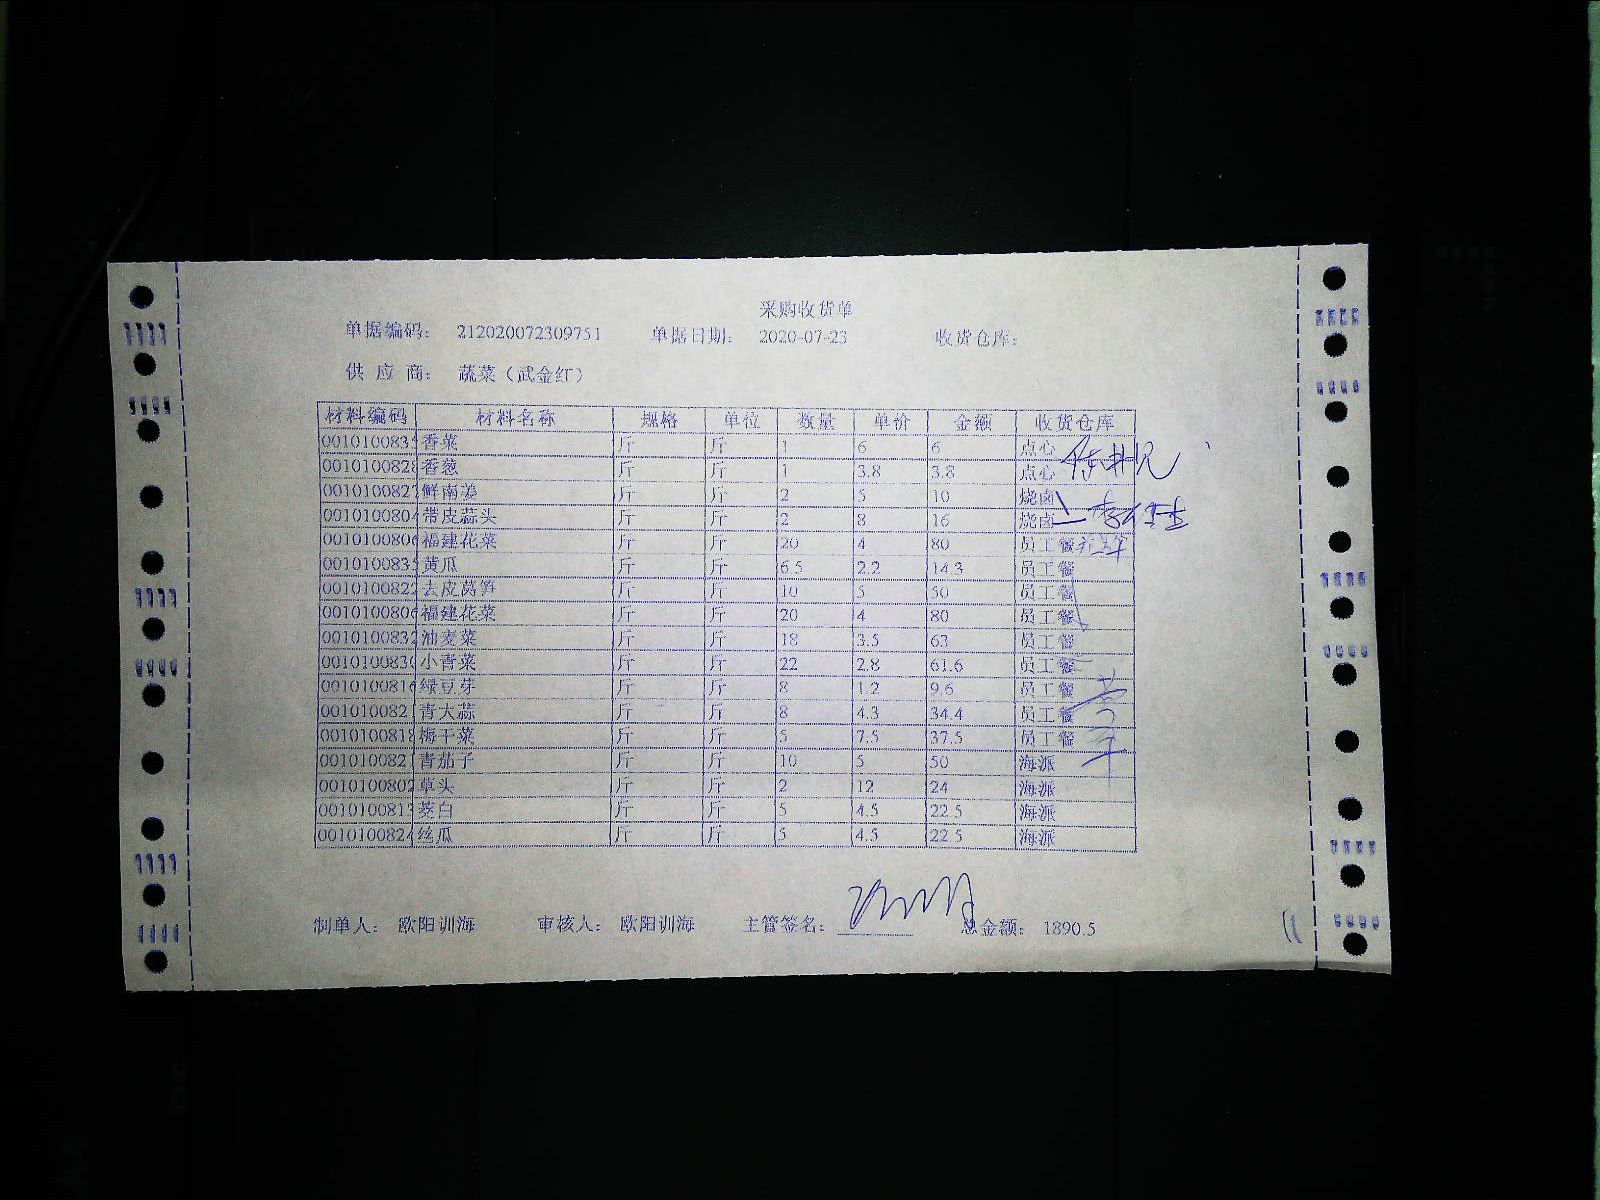 采购收货单
单据编码： 212020072309751 单据日期： 2020-07-23 收货仓库：
供 应 商： 蔬菜（武金红）
材料编码 材料名称 规格 单位 数量 单价 金额 收货仓库
001010083 香菜 斤 斤 1 6 6 点心
0010100828 香葱 斤 斤 1 3.8 3.8 点心
001010082 鲜南姜 斤 斤 2 5 10 烧卤
001010080 带皮蒜头 斤 斤 2 8 16 烧卤
001010080 福建花菜 斤 斤 20 4 80 员工餐
001010083 黄瓜 斤 斤 6.5 2.2 14.3 员工餐
001010082 去皮莴笋 斤 斤 10 5 50 员工餐
001010080 福建花菜 斤 斤 20 4 80 员工餐
001010083 油麦菜 斤 斤 18 3.5 63 员工餐
001010083 小青菜 斤 斤 22 2.8 61.6 员工餐
001010081 绿豆芽 斤 斤 8 1.2 9.6 员工餐
001010082 青大蒜 斤 斤 8 4.3 34.4 员工餐
001010081 梅干菜 斤 斤 5 7.5 37.5 员工餐
001010082 青茄子 斤 斤 10 5 50 海派
001010080 草头 斤 斤 2 12 24 海派
001010081 茭白 斤 斤 5 4.5 22.5 海派
001010082 丝瓜 斤 斤 5 4.5 22.5 海派
制单人： 欧阳训海 审核人： 欧阳训海 主管签名： 总金额： 1890.5